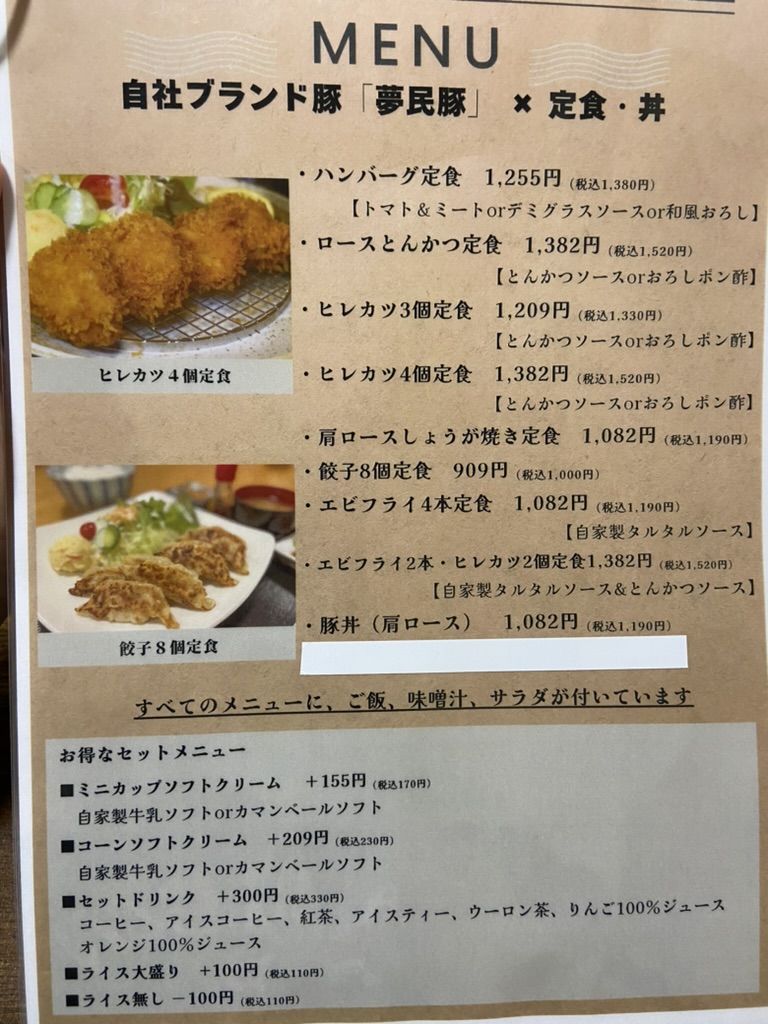 MENU
自社ブランド豚「夢民豚」 × 定食・丼
・ハンバーグ定食 1,255円 (税込1,380円)
【トマト＆ミートorデミグラスソースor和風おろし】
・ロースとんかつ定食 1,382円 (税込1,520円)
【とんかつソースorおろしポン酢】
・ヒレカツ3個定食 1,209円 (税込1,330円)
【とんかつソースorおろしポン酢】
・ヒレカツ4個定食 1,382円 (税込1,520円)
【とんかつソースorおろしポン酢】
ヒレカツ４個定食
・肩ロースしょうが焼き定食 1,082円 (税込1,190円)
・餃子8個定食 909円 (税込1,000円)
・エビフライ4本定食 1,082円 (税込1,190円)
【自家製タルタルソース】
・エビフライ2本・ヒレカツ2個定食1,382円 (税込1,520円)
【自家製タルタルソース&とんかつソース】
・豚丼（肩ロース） 1,082円 (税込1,190円)
餃子８個定食
すべてのメニューに、ご飯、味噌汁、サラダが付いています
お得なセットメニュー
■ミニカップソフトクリーム ＋155円 (税込170円)
自家製牛乳ソフトorカマンベールソフト
■コーンソフトクリーム ＋209円 (税込230円)
自家製牛乳ソフトorカマンベールソフト
■セットドリンク ＋300円 (税込330円)
コーヒー、アイスコーヒー、紅茶、アイスティー、ウーロン茶、りんご100％ジュース
オレンジ100％ジュース
■ライス大盛り ＋100円 (税込110円)
■ライス無し －100円 (税込110円)